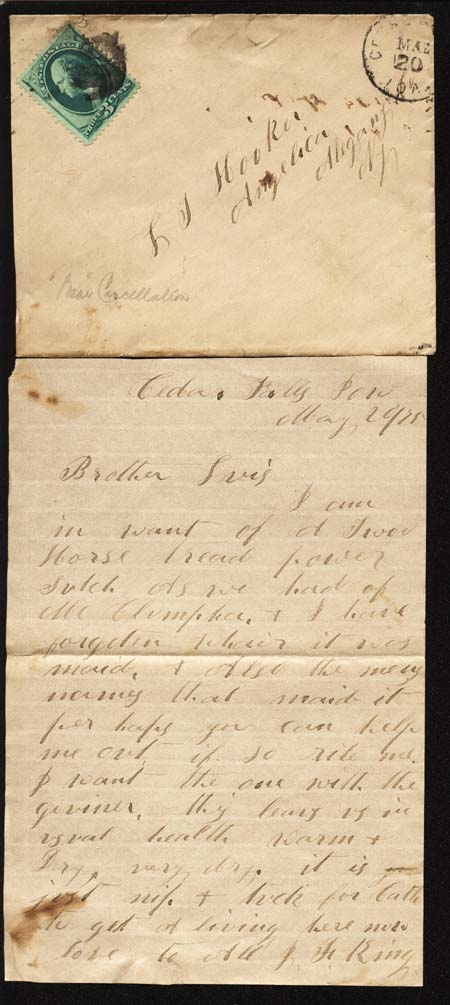 THREE CENTS
MAY
20
IOWA
L S Hooker
Angelica
Allegany
NY
"Bear" Cancellation
Cedar Falls Iow
May 20/75
Brother Lvis
I am
in want of a Twoo
Horse tread power
Sutch As we had of
Mc Olvmpha. & I have
forgoten whair it was
maid. & Also the mens
names that maid it
per haps you can help
me ovt if so rite me.
I want the one with the
goviner. this leavs vs in
vsval health warm &
Dry, very dry. it is
jvst nip & tvck for Catle
to get A living here now
love to All J. H King